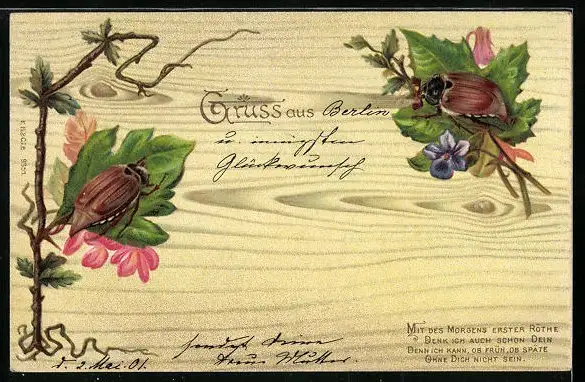 Gruss aus Berlin
u. innigsten
Glückwunsch
sendet Deine
treue Mutter.
d. 2. Mai. 01.
MIT DES MORGENS ERSTER RÖTHE
DENK ICH AUCH SCHON DEIN
DENN ICH KANN, OB FRÜH, OB SPÄTE
OHNE DICH NICHT SEIN.